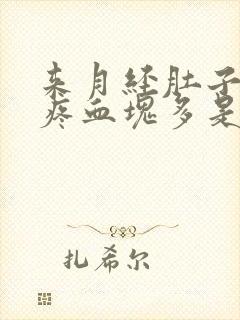 来月经肚子
疼血块多是
扎希尔